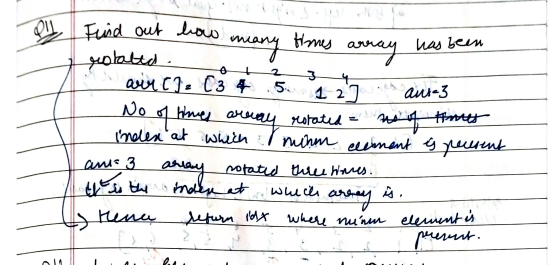 Q11 Find out how many times array has been
rotated.
0 1 2 3 4
arr[] = [3 4 5 1 2] ans=3
No of times array rotated = no of times
index at which minm element is present
ans= 3 array rotated three times.
It is the index at which array is.
→ Hence return idx where minm element is
present.